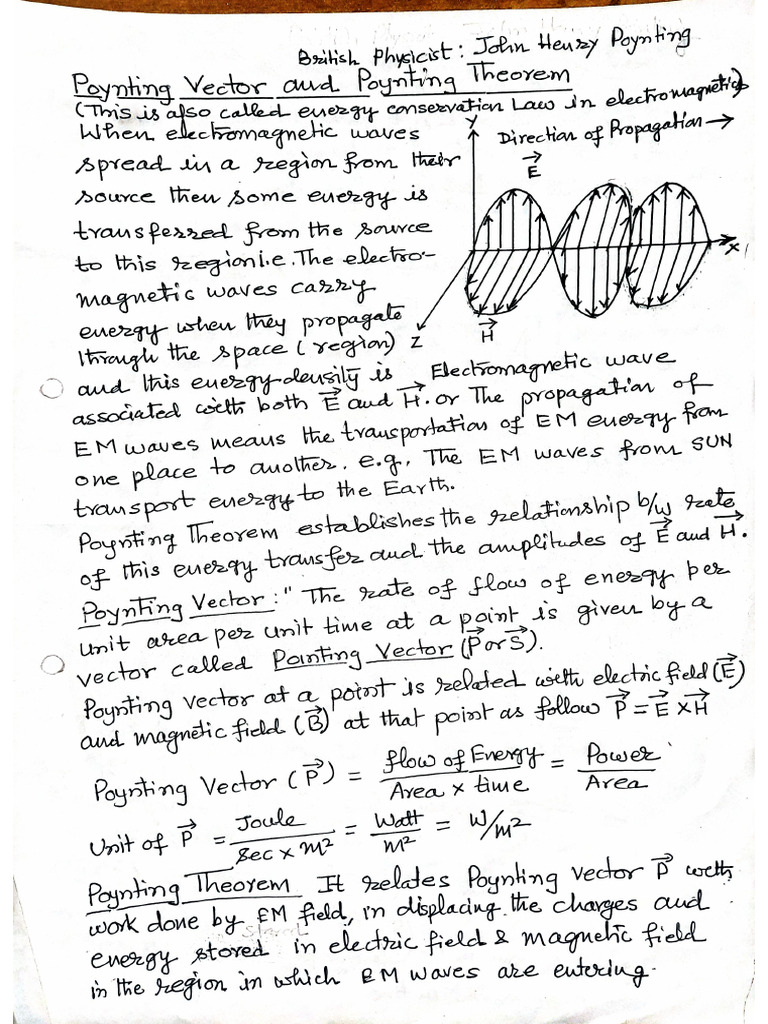 British Physicist: John Henry Poynting
Poynting Vector and Poynting Theorem
(This is also called energy conservation Law in electromagnetics)
When electromagnetic waves
spread in a region from their
source then some energy is
transferred from the source
to this region i.e. The electro-
magnetic waves carry
energy when they propagate
through the space (region)
Y
Direction of Propagation →
E⃗
X
Z
H⃗
Electromagnetic wave
and this energy density is
associated with both E⃗ and H⃗. or The propagation of
EM waves means the transportation of EM energy from
one place to another. e.g., The EM waves from SUN
transport energy to the Earth.
Poynting Theorem establishes the relationship b/w rate
of this energy transfer and the amplitudes of E⃗ and H⃗.
Poynting Vector: " The rate of flow of energy per
unit area per unit time at a point is given by a
vector called Pointing Vector (P⃗ or S⃗).
Poynting vector at a point is related with electric field (E⃗)
and magnetic field (B⃗) at that point as follow P⃗ = E⃗ × H⃗
Poynting Vector (P⃗) = flow of Energy / Area × time = Power / Area
Unit of P⃗ = Joule / Sec × m² = Watt / m² = W/m²
Poynting Theorem It relates Poynting vector P⃗ with
work done by EM field, in displacing the charges and
energy stored in electric field & magnetic field
in the region in which EM waves are entering.